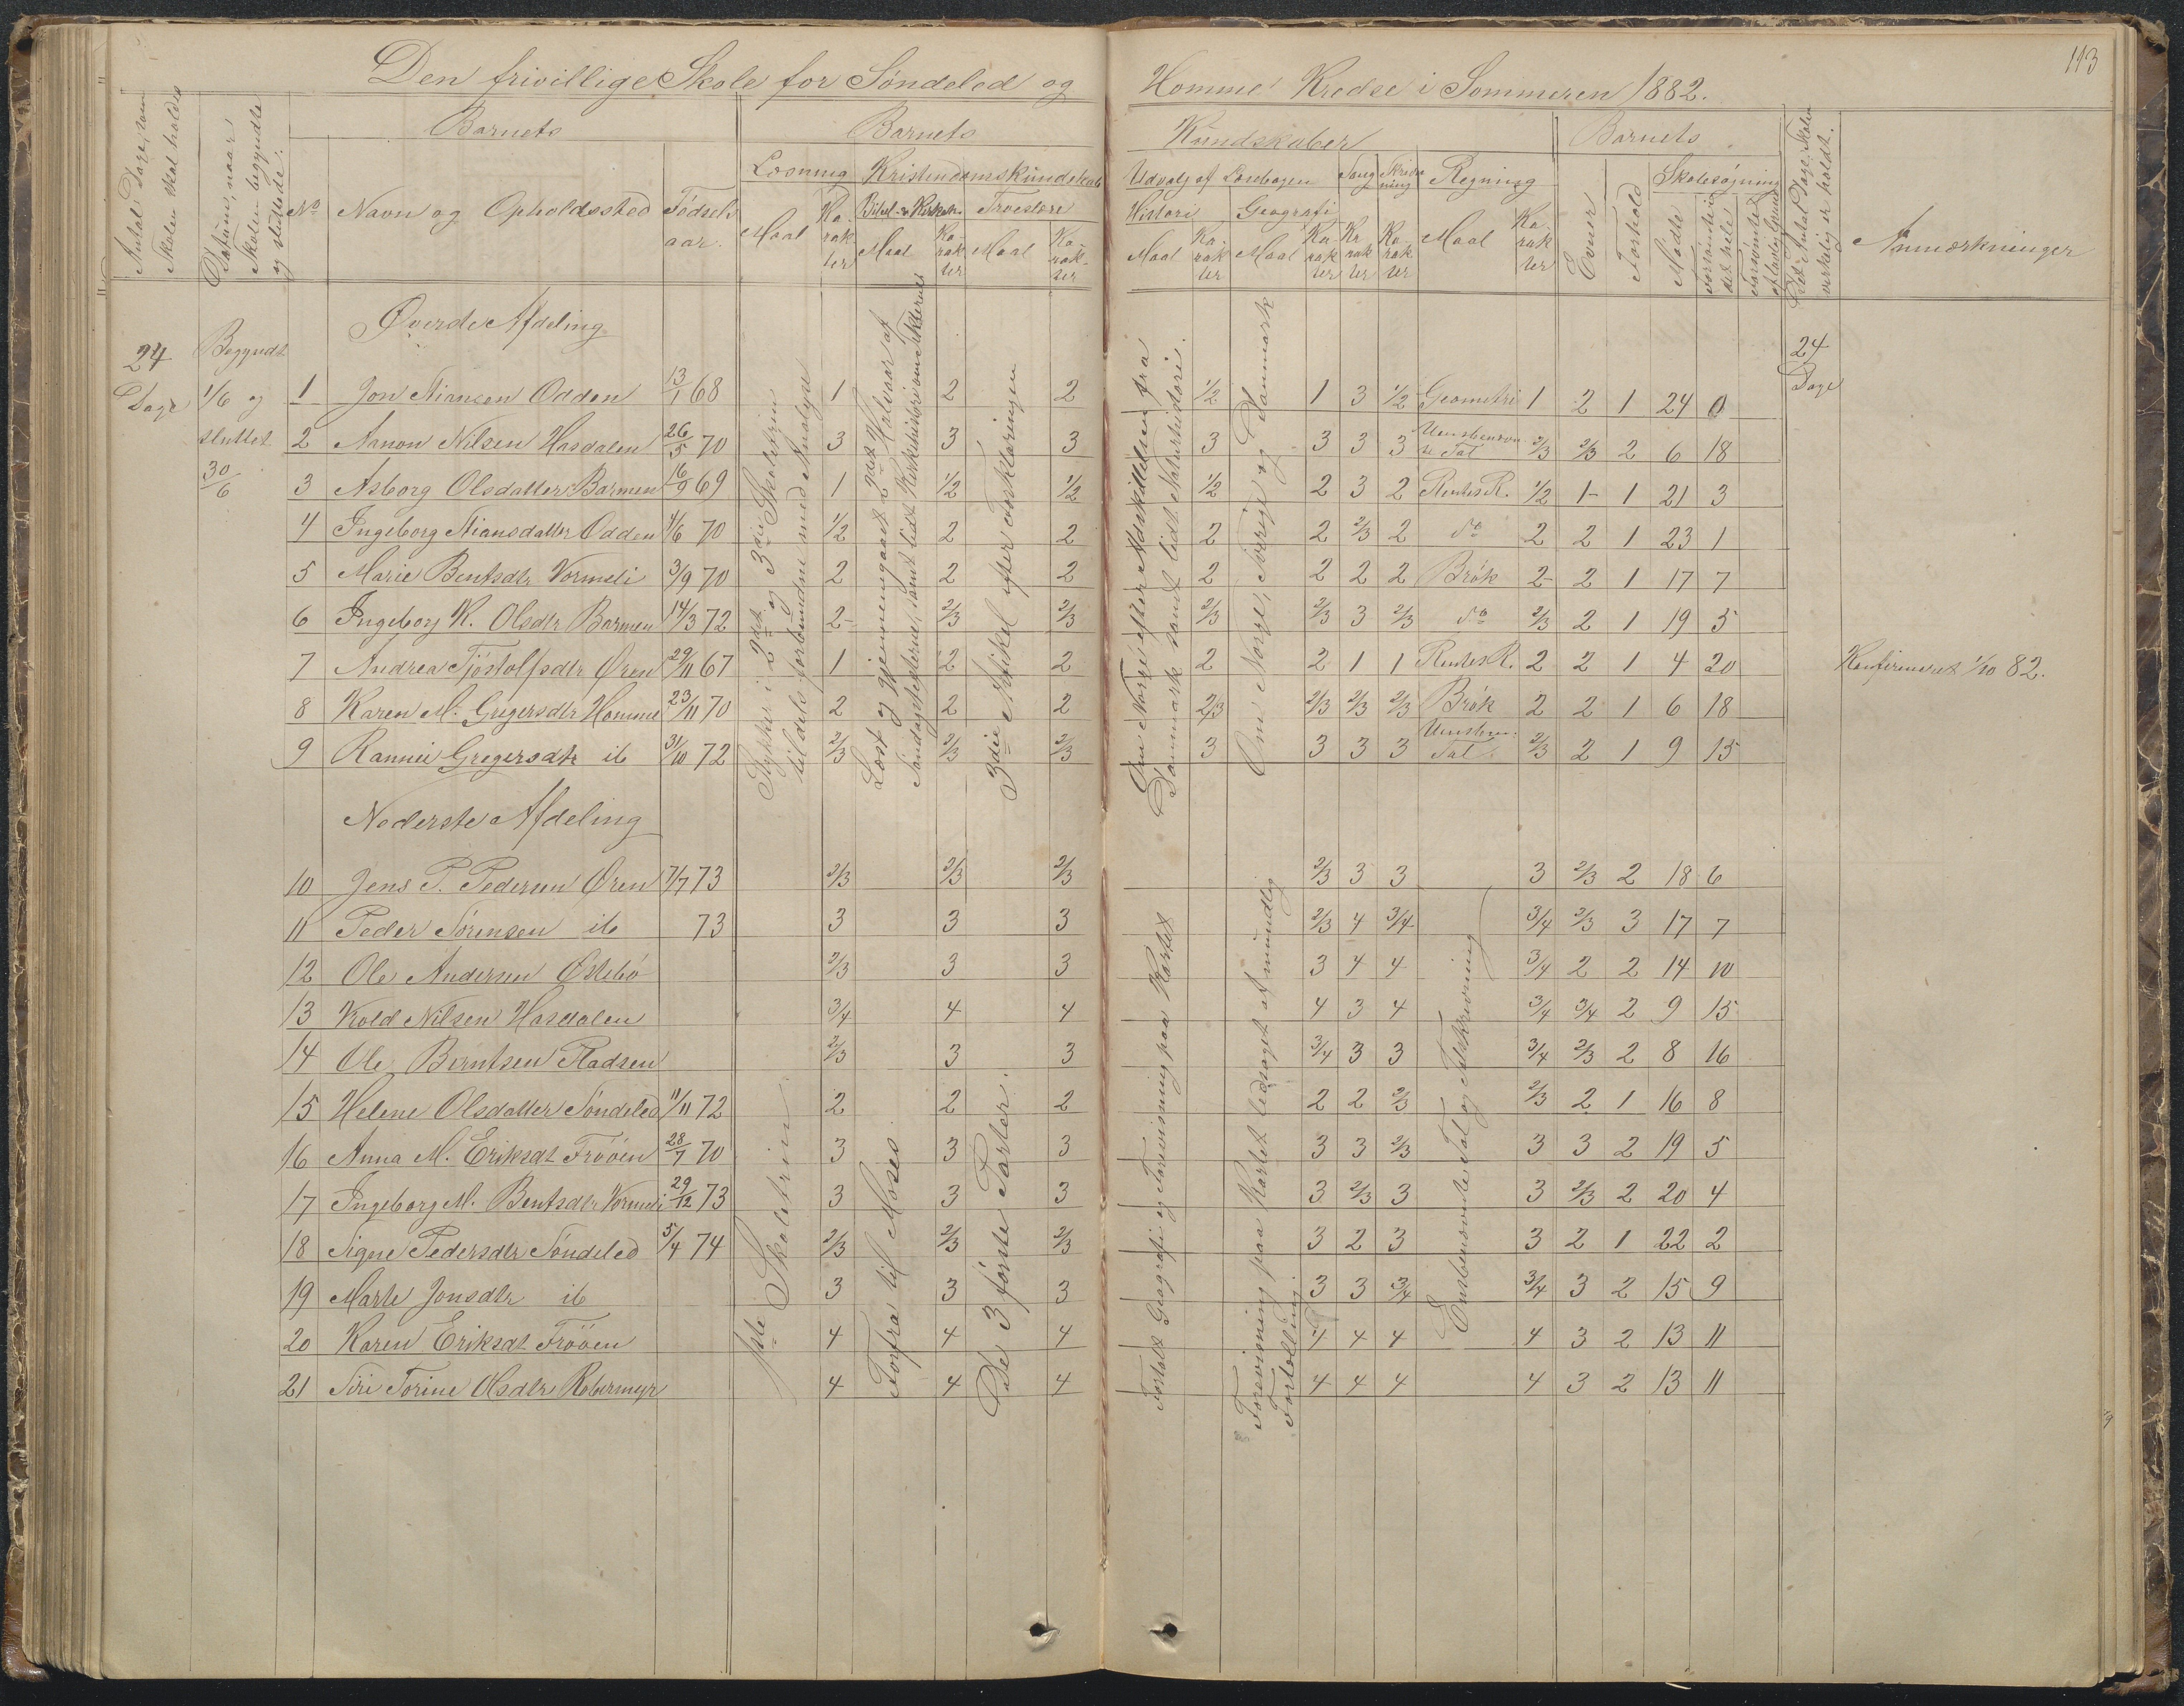 113
Den frivillige Skole for Söndeled og Homme Kredse i Sommeren 1882.
Antal Dage, som Skolen skal holdes
Datum, naar Skolen begyndte og sluttede.
Barnets
Barnets
Kundskaber
Barnets
Det Antal Dage, Skolen virkelig er holdt.
Anmærkninger
No
Navn og Opholdssted
Födsels aar.
Læsning
Kristendomskundskab
Udvalg af Læsebogen
Sang
Skrivning
Regning
Evner
Forhold
Skolesøgning
Bibel- og Kirkeh.
Troeslære
Historie
Geografi
Mødte
forsømte i det hele
Forsømte af lovlig Grund
Maal
Karakter
Maal
Karakter
Maal
Karakter
Maal
Karakter
Maal
Karakter
Karakter
Karakter
Maal
Karakter
Øverste Afdeling
24 Dage
Begyndt 1/6 og sluttet 30/6
24 Dage
Stykker i 2det og 3die Skoletrin tildels forbundne med Analyse
Læst og gjennemgaaet 2det Halvaar af Søndagsteksterne, samt lidt Kirkehistorie om Sekterne
3die Artikel efter Forklaringen
Om Norge efter Adskillelsen fra Danmark samt lidt Naturhistorie.
Om Norge, Sverige og Danmark
1 Jon Stiansen Odden 13/1 68 1 2 2 1/2 1 3 1/2 Geometri 1 2 1 24 0
2 Aanon Nilsen Hasdalen 26/5 70 3 3 3 3 3 3 3 Uensbenævnte Tal 2/3 2/3 2 6 18
3 Asborg Olsdatter Barmen 16/9 69 1 1/2 1/2 1/2 2 3 2 RentesR. 1/2 1- 1 21 3
4 Ingeborg Stiansdatter Odden 4/6 70 1/2 2 2 2 2 2/3 2 do 2 2 1 23 1
5 Marie Bentsdtr Vormeli 3/9 70 2 2 2 2 2 2 2 Brök 2- 2 1 17 7
6 Ingeborg K. Olsdtr Barmen 14/3 72 2- 2/3 2/3 2/3 2/3 3 2/3 do 2/3 2 1 19 5
7 Andrea Tjöstolfsdtr Øren 29/11 67 1 2 2 2 2 1 1 RentesR. 2 2 1 4 20 Konfirmeret 1/10 82.
8 Karen M. Gregersdtr Homme 23/11 70 2 2 2 2/3 2/3 2/3 2/3 Brök 2 2 1 6 18
9 Rannei Gregersdtr ib 31/10 72 2/3 2/3 2/3 3 3 3 3 Uensben. Tal. 2/3 2 1 9 15
Nederste Afdeling
1ste Skoletrin.
Forfra til Moses
De 3 første Parter.
Fortalt Geografi og Forevisning paa Kartet
Forevisning paa Kartet ledsaget af mundlig Fortælling.
Ensbenævnte Tal og Talskrivning
10 Jens P. Pedersen Øren 7/7 73 2/3 2/3 2/3 2/3 3 3 3 2/3 2 18 6
11 Peder Sörensen ib 73 3 3 3 2/3 4 3/4 3/4 2/3 3 17 7
12 Ole Andersen Østebö 2/3 3 3 3 4 4 3/4 2 2 14 10
13 Kold Nilsen Hasdalen 3/4 4 4 4 3 4 3/4 3/4 2 9 15
14 Ole Berntsen Pladsen 2/3 3 3 3/4 3 3 3/4 2/3 2 8 16
15 Helene Olsdatter Söndeled 11/11 72 2 2 2 2 2 2/3 2/3 2 1 16 8
16 Anna M. Eriksdt Fröøen 28/7 70 3 3 3 3 3 2/3 3 3 2 19 5
17 Ingeborg M. Bentsdtr Vormeli 29/12 73 3 3 3 3 2/3 3 3 2/3 2 20 4
18 Signe Pedersdtr Söndeled 5/4 74 2/3 2/3 2/3 3 2 3 3 2 1 22 2
19 Marte Jonsdtr ib 3 3 3 3 3 3/4 3/4 3 2 15 9
20 Karen Eriksdt Fröøen 4 4 4 4 4 4 4 3 2 13 11
21 Siri Torine Olsdtr 4 4 4 4 4 4 4 3 2 13 11